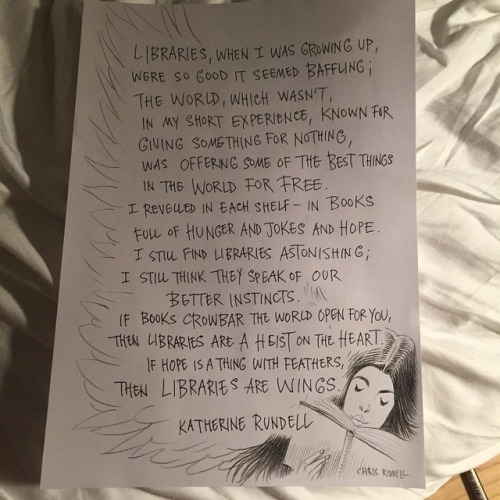 LIBRARIES, WHEN I WAS GROWING UP,
WERE SO GOOD IT SEEMED BAFFLING;
THE WORLD, WHICH WASN'T,
IN MY SHORT EXPERIENCE, KNOWN FOR
GIVING SOMETHING FOR NOTHING,
WAS OFFERING SOME OF THE BEST THINGS
IN THE WORLD FOR FREE.
I REVELLED IN EACH SHELF - IN BOOKS
FULL OF HUNGER AND JOKES AND HOPE.
I STILL FIND LIBRARIES ASTONISHING;
I STILL THINK THEY SPEAK OF OUR
BETTER INSTINCTS.
IF BOOKS CROWBAR THE WORLD OPEN FOR YOU,
THEN LIBRARIES ARE A HEIST ON THE HEART.
IF HOPE IS A THING WITH FEATHERS,
THEN LIBRARIES ARE WINGS.
KATHERINE RUNDELL
CHRIS RIDDELL